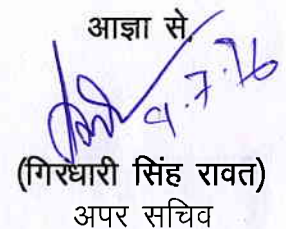 आज्ञा से,
9.7.16
(गिरधारी सिंह रावत)
अपर सचिव